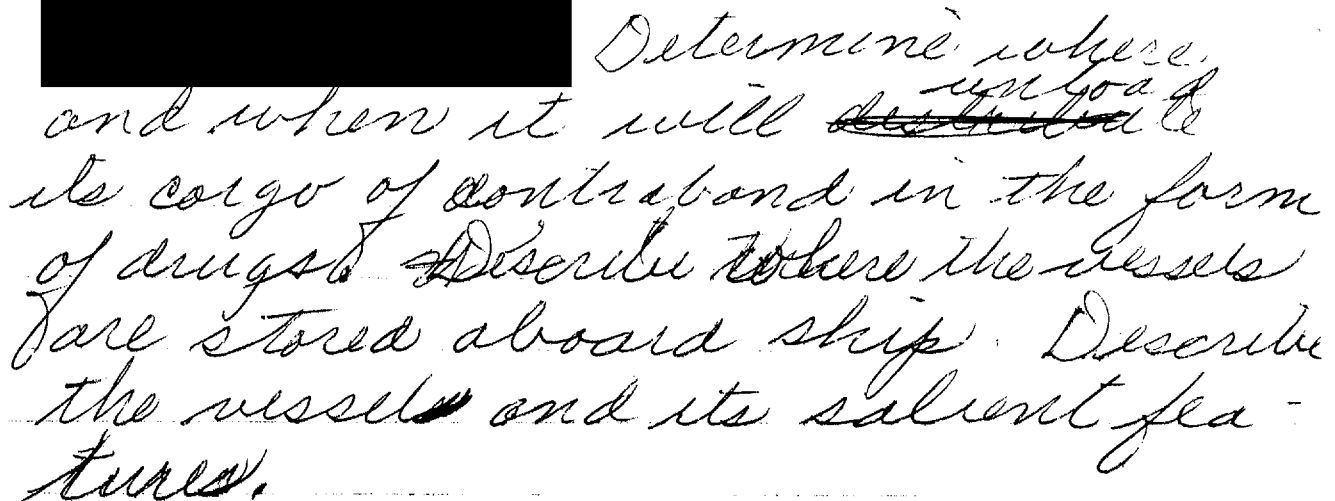 Determine where
and when it will unload
its cargo of contraband in the form
of drugs. Describe where the vessels
are stored aboard ship. Describe
the vessel and its salient fea-
tures.